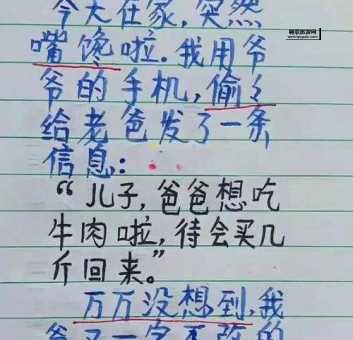 今天在家，突然
嘴馋啦。我用爷
爷的手机，偷偷
给老爸发了一条
信息：
“儿子，爸爸想吃
牛肉啦，待会买几
斤回来。”
万万没想到，我
爸又一字不改的